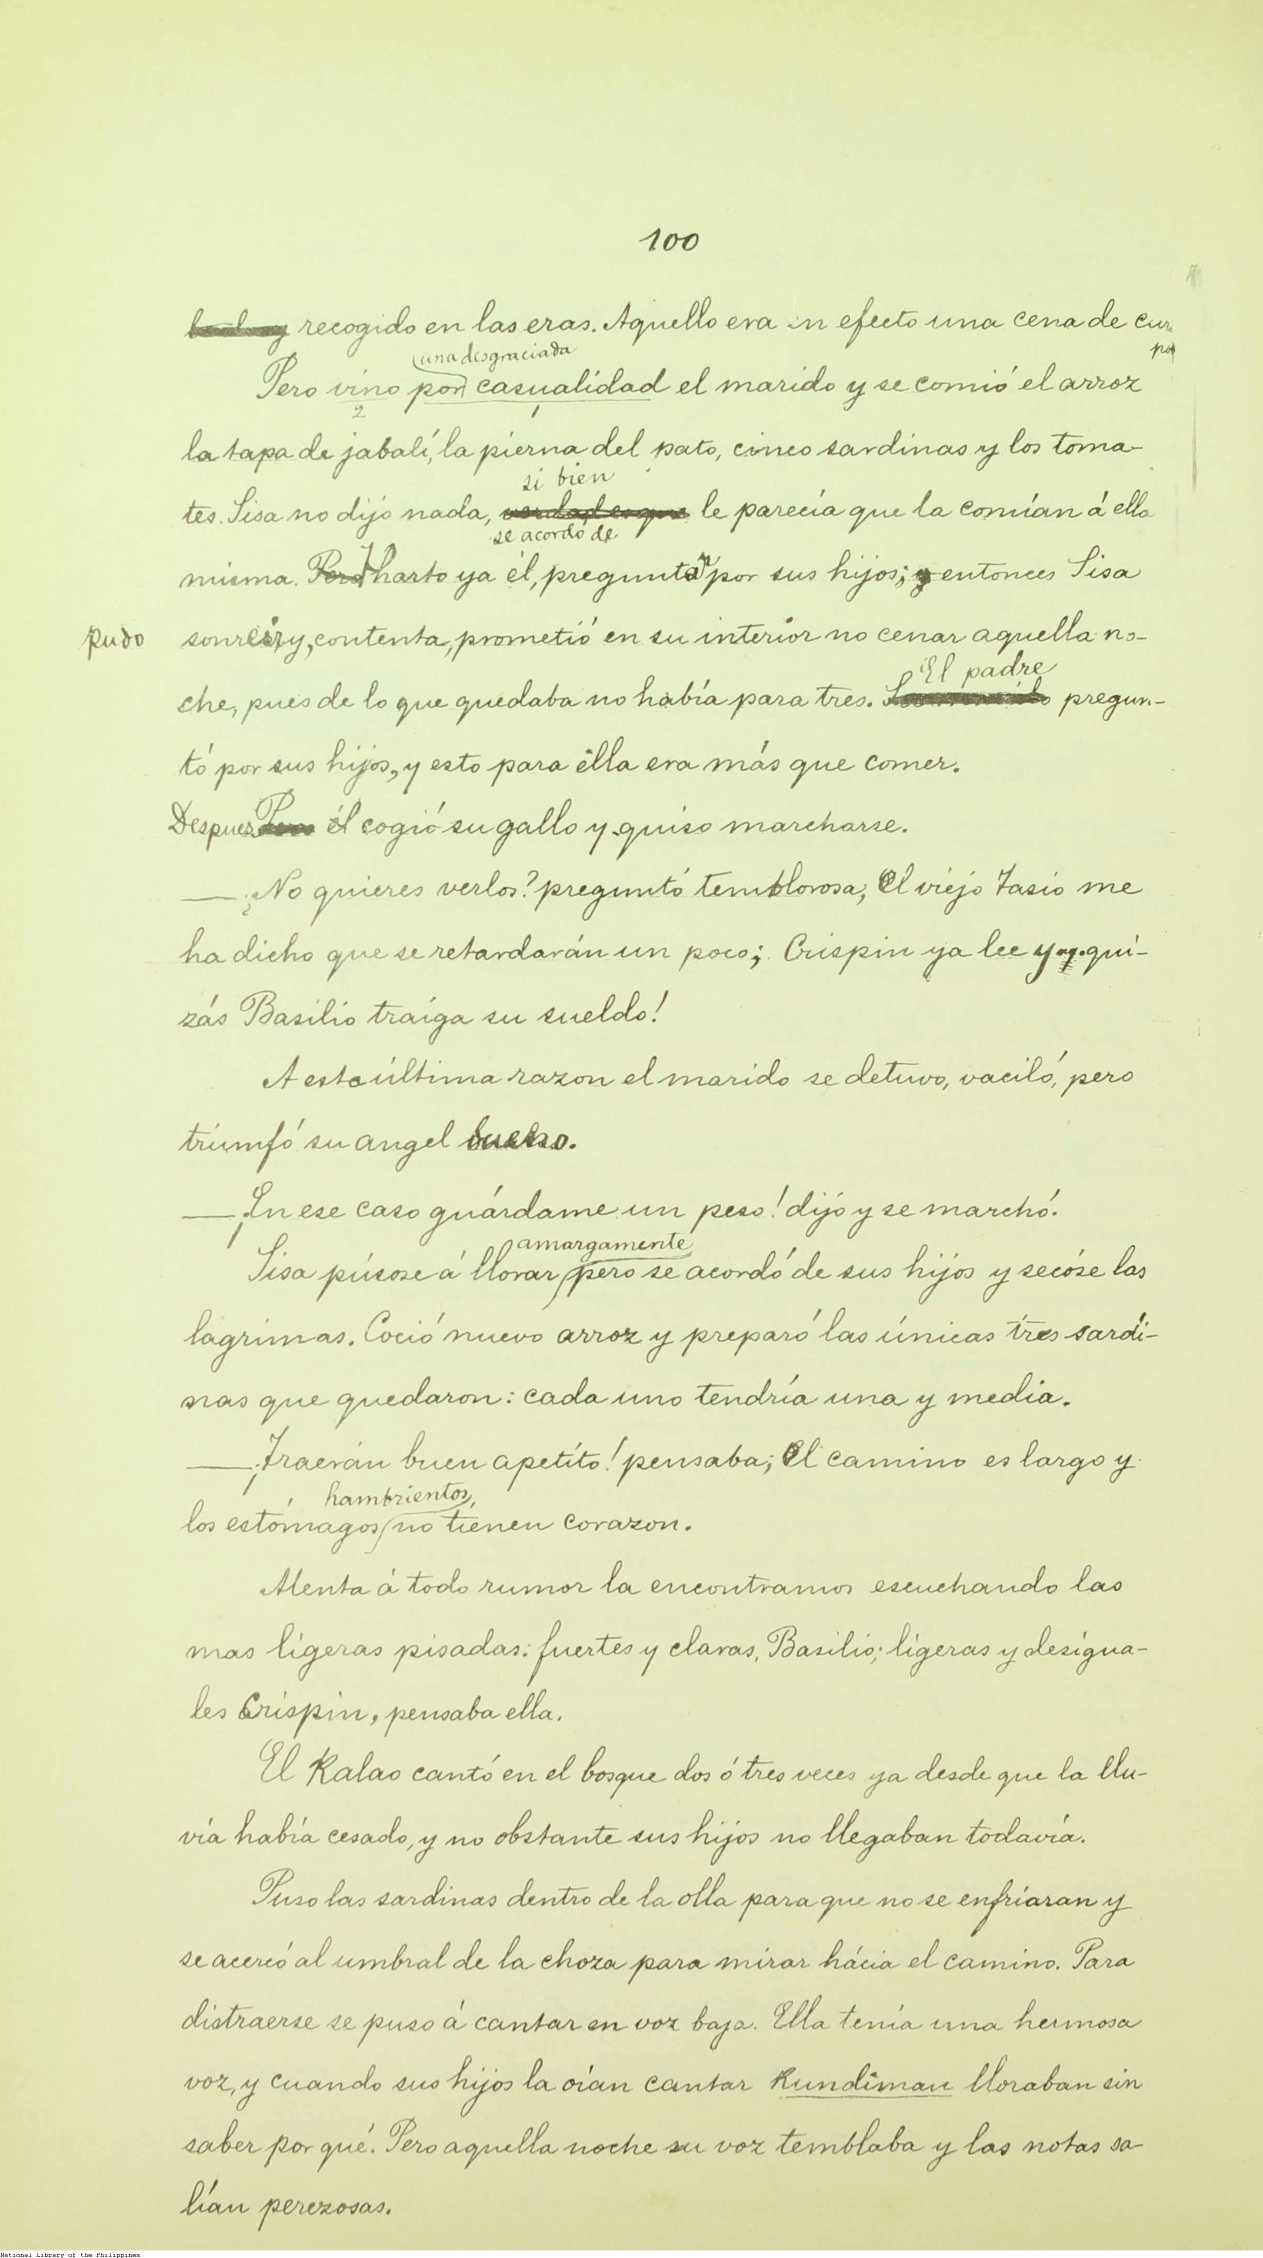 100
recogido en las eras. Aquello era en efecto una cena de cura
una desgraciada
Pero vino por casualidad el marido y se comió el arroz
2
la tapa de jabalí, la pierna del pato, cinco sardinas y los toma-
si bien
tes. Sisa no dijo nada, verdad es que le parecía que la comían á ella
se acordó de
misma. Pero harto ya él, preguntar por sus hijos; y entonces Sisa
pudo sonreir y, contenta, prometió en su interior no cenar aquella no-
El padre
che, pues de lo que quedaba no había para tres. pregun-
tó por sus hijos, y esto para ella era más que comer.
Despues él cogió su gallo y quiso marcharse.
— ¿No quieres verlos? preguntó temblorosa; El viejo Tasio me
ha dicho que se retardarán un poco; Crispin ya lee y qui-
zás Basilio traiga su sueldo!
A esta última razon el marido se detuvo, vaciló, pero
triumfó su angel bueno.
— ¡En ese caso guárdame un peso! dijo y se marchó.
amargamente
Sisa púsose á llorar pero se acordó de sus hijos y secóse las
lagrimas. Coció nuevo arroz y preparó las únicas tres sardi-
nas que quedaron: cada uno tendría una y media.
— ¡Traerán buen apetito! pensaba; El camino es largo y
hambrientos,
los estómagos no tienen corazon.
Atenta á todo rumor la encontramos escuchando las
mas ligeras pisadas: fuertes y claras, Basilio; ligeras y desigua-
les Crispin, pensaba ella.
El Kalao cantó en el bosque dos ó tres veces ya desde que la llu-
via había cesado, y no obstante sus hijos no llegaban todavía.
Puso las sardinas dentro de la olla para que no se enfriaran y
se acercó al umbral de la choza para mirar hácia el camino. Para
distraerse se puso á cantar en voz baja. Ella tenía una hermosa
voz, y cuando sus hijos la oían cantar Kundiman lloraban sin
saber por qué. Pero aquella noche su voz temblaba y las notas sa-
lían perezosas.
National Library of the Philippines